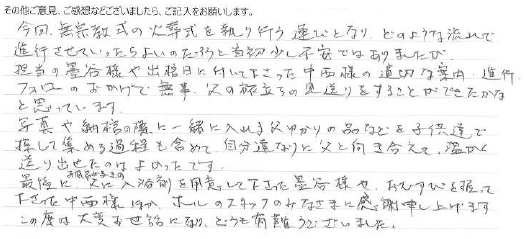 その他ご意見、ご感想などございましたら、ご記入をお願いします。
今回、無宗教式の火葬式を執り行う運びとなり、どのような流れで
進行させていったらよいのだろうと当初少し不安ではありましたが、
担当の墨谷様や出棺日に付いて下さった中西様の適切な案内、進行、
フォローのおかげで無事、父の旅立ちの見送りをすることができたかな
と思っています。
写真や納棺の際に一緒に入れる父ゆかりの品などを子供達で
探して集める過程も含めて、自分達なりに父と向き合えて、温かく
送り出せたのはよかったです。
最後にお風呂好きの父に入浴剤を用意して下さった墨谷様や、おむすびを握って
下さった中西様ほか、ホールのスタッフのみなさまに感謝申し上げます。
この度は大変お世話になり、どうも有難うございました。